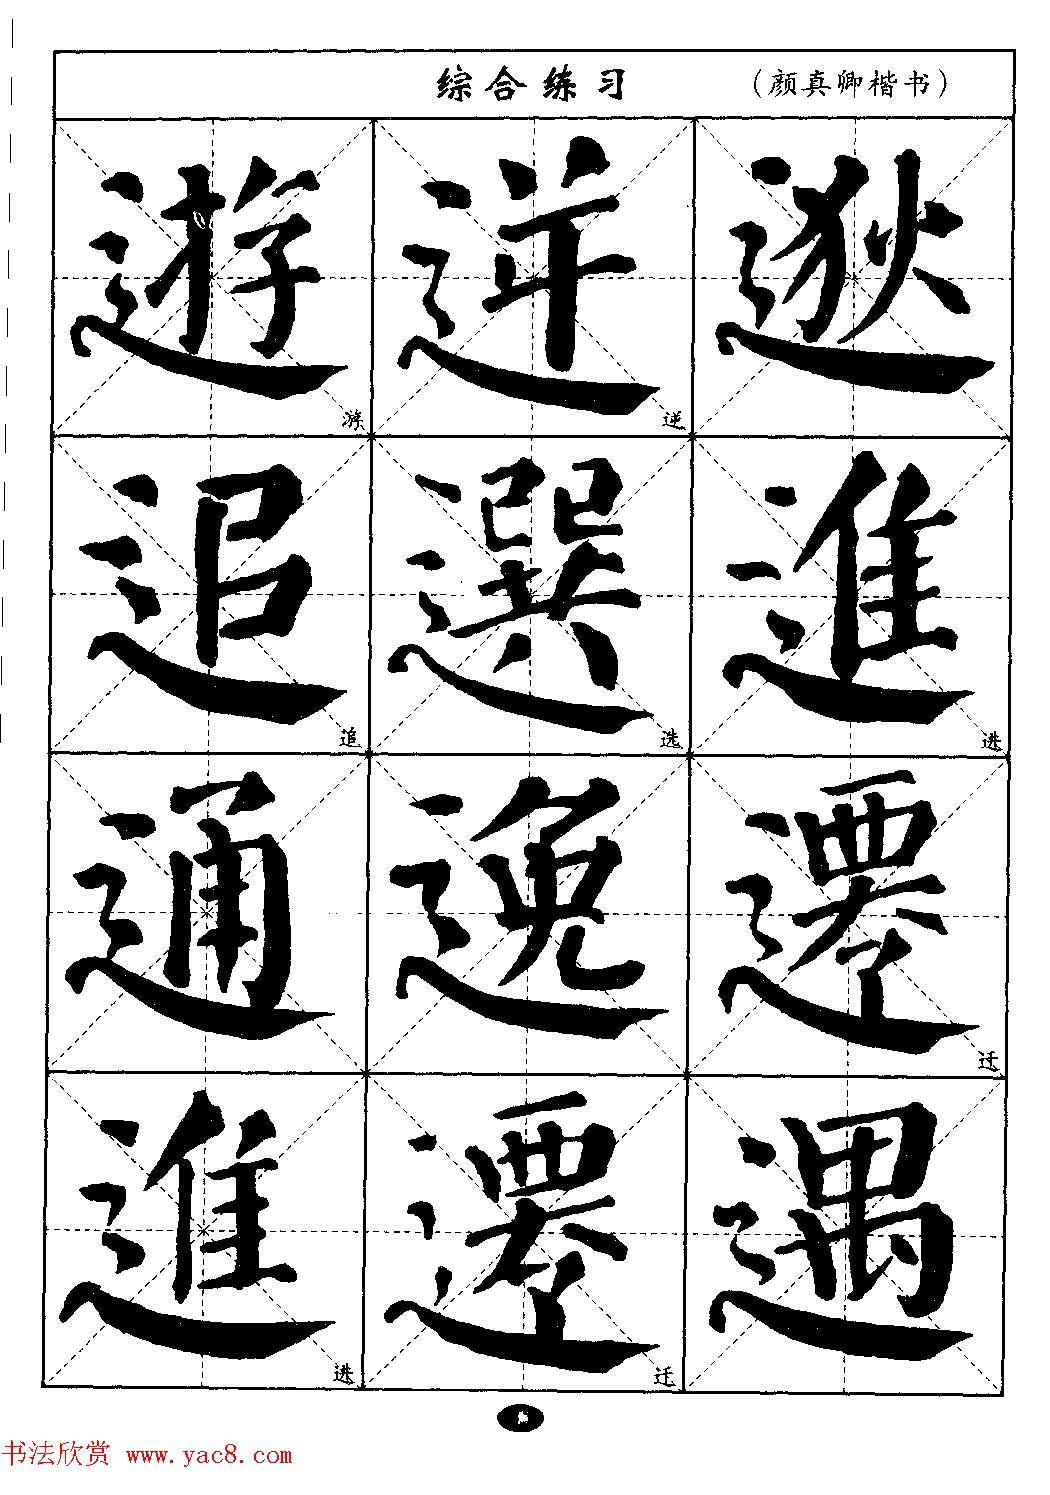 综合练习 （颜真卿楷书）
遊 逆 逖
游 逆
追 選 進
追 选 进
通 逸 遷
迁
進 遷 遇
进 迁
书法欣赏 www.yac8.com